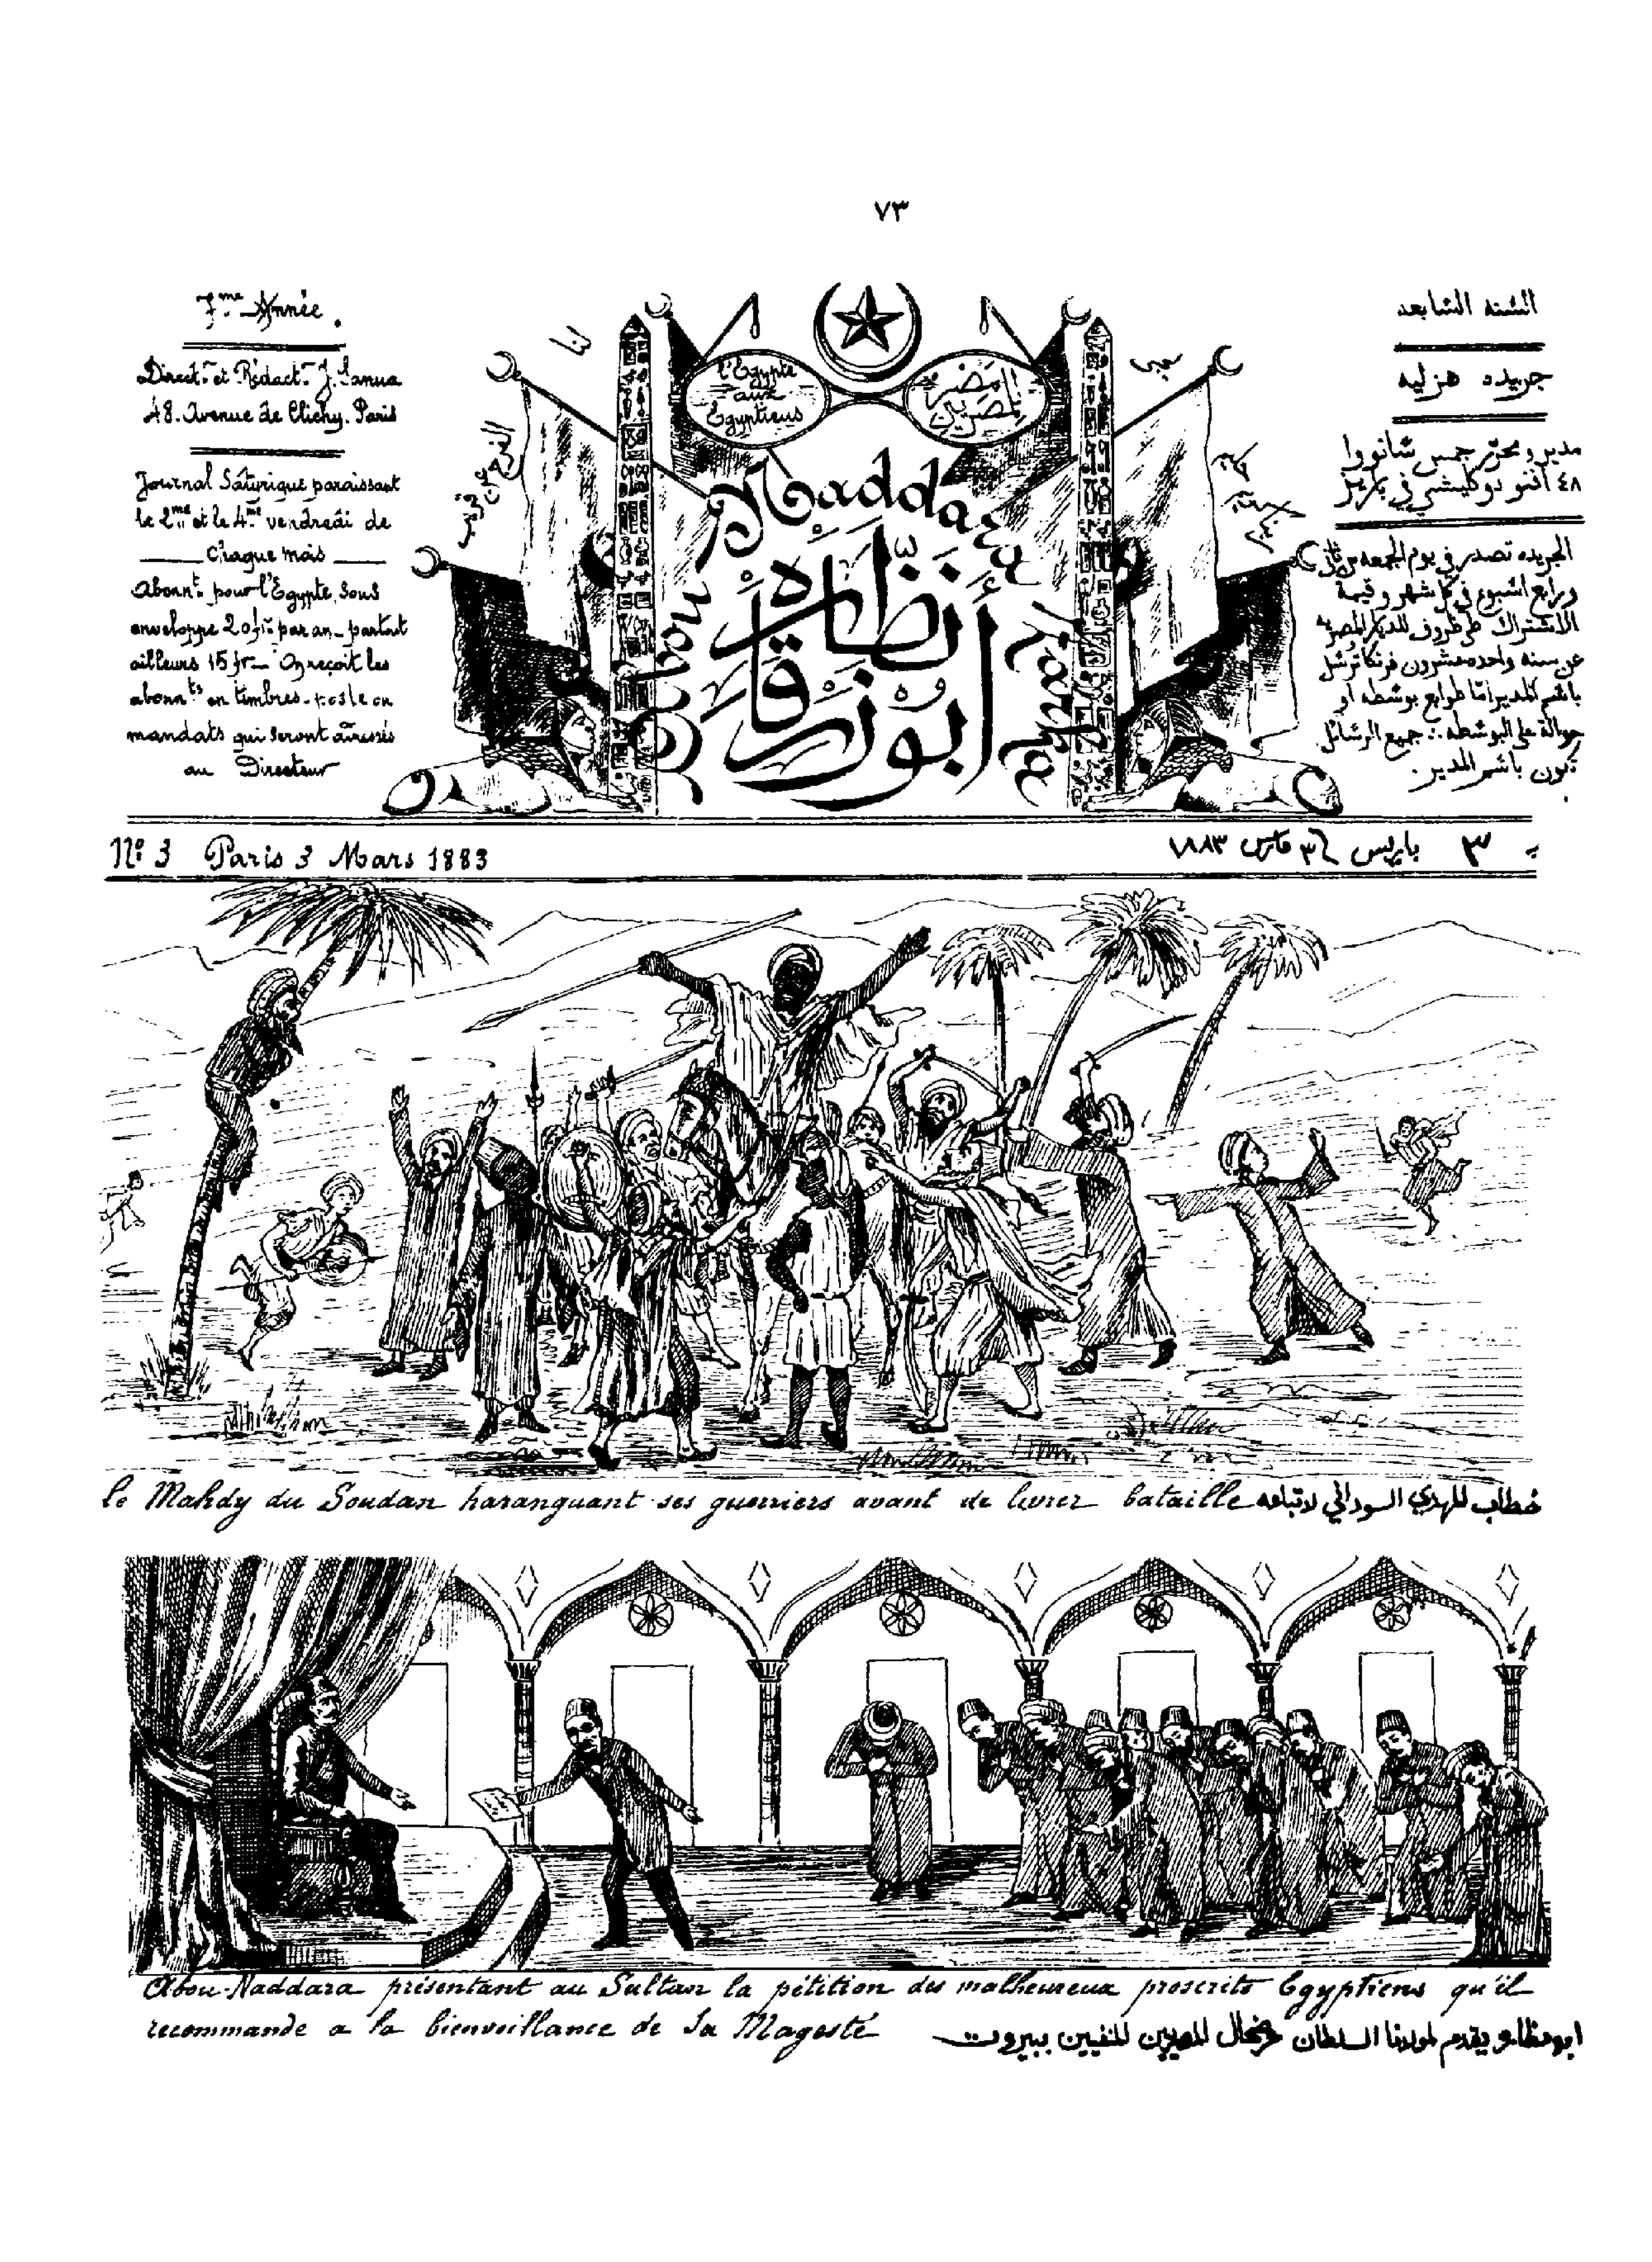 ٧٣
7.me Année.
Direct.r et Rédact.r J. Sanua
48. Avenue de Clichy. Paris
Journal Satyrique paraissant
le 2me et le 4me vendredi de
chaque mois
Abonn.t pour l'Egypte, sous
enveloppe 20 fr. par an_ partout
ailleurs 15 fr_ On reçoit les
abonn.ts en timbres-poste ou
mandats qui seront adressés
au Directeur
l'Egypte
aux
Egyptiens
مصر
للمصريين
Abou Naddara Zarka
أبو نظارة زرقا
السنه السابعه
جريده هزليه
مدير ومحرر جمس سانووا
٤٨ افنو دوكليشي في باريز
الجريده تصدر في يوم الجمعه من ثاني
ورابع اسبوع في كل شهر وقيمة
الاشتراك ظروف للديار المصريه
عن سنه واحده عشرون فرنكا ترسل
باسم المدير اما طوابع بوسطه او
حوالة على البوسطه. جميع الرسائل
تكون باسم المدير.
No 3 Paris 3 Mars 1883
٣ باريس ٣ مارس ١٨٨٣
le Mahdy du Soudan haranguant ses guerriers avant de livrer bataille خطاب المهدي السوداني لاتباعه
Abou-Naddara présentant au Sultan la pétition des malheureux proscrits Egyptiens qu'il
recommande a la bienveillance de Sa Magesté
ابو نظاره يقدم لمولانا السلطان عرضحال المصريين المنفيين ببيروت